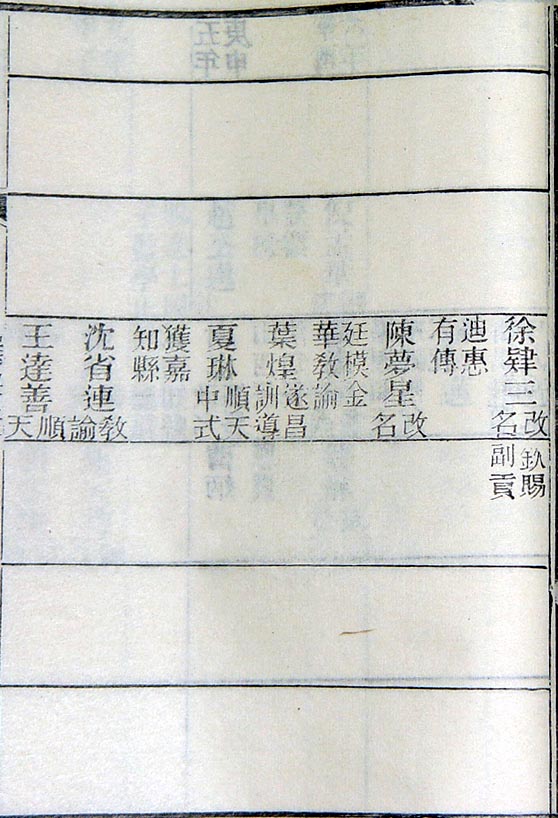 徐肄三改名
迪惠
有傳
陳夢星改名
廷模金
華教諭
葉煌遂昌訓導
夏琳順天中式
獲嘉
知縣
沈省連教諭
王達善順天
欽賜
副貢